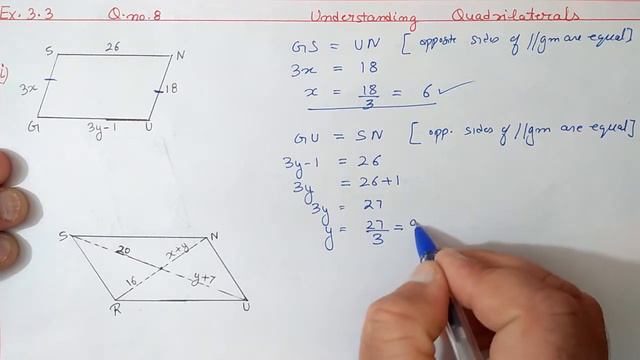 Ex. 3.3 Q.no.8 Understanding Quadrilaterals
i)
S 26 N
3x 18
G 3y-1 U
GS = UN [opposite sides of //gm are equal]
3x = 18
x = 18/3 = 6 ✓
GU = SN [opp. sides of //gm are equal]
3y-1 = 26
3y = 26+1
3y = 27
y = 27/3 = 9
S N
20 x+y
16 y+7
R U